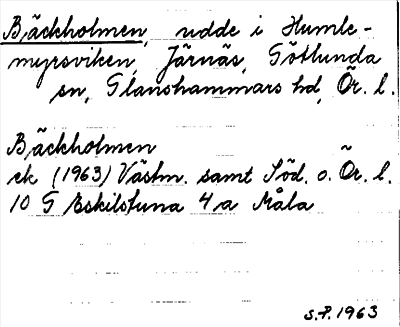 Bäckholmen, udde i Humle-
myrsviken, Järnäs, Götlunda
sn, Glanshammars hd, Ör. l.
Bäckholmen
ek (1963) Västm. samt Söd. o. Ör. l.
10 G Eskilstuna 4 a Måla
S.P. 1963